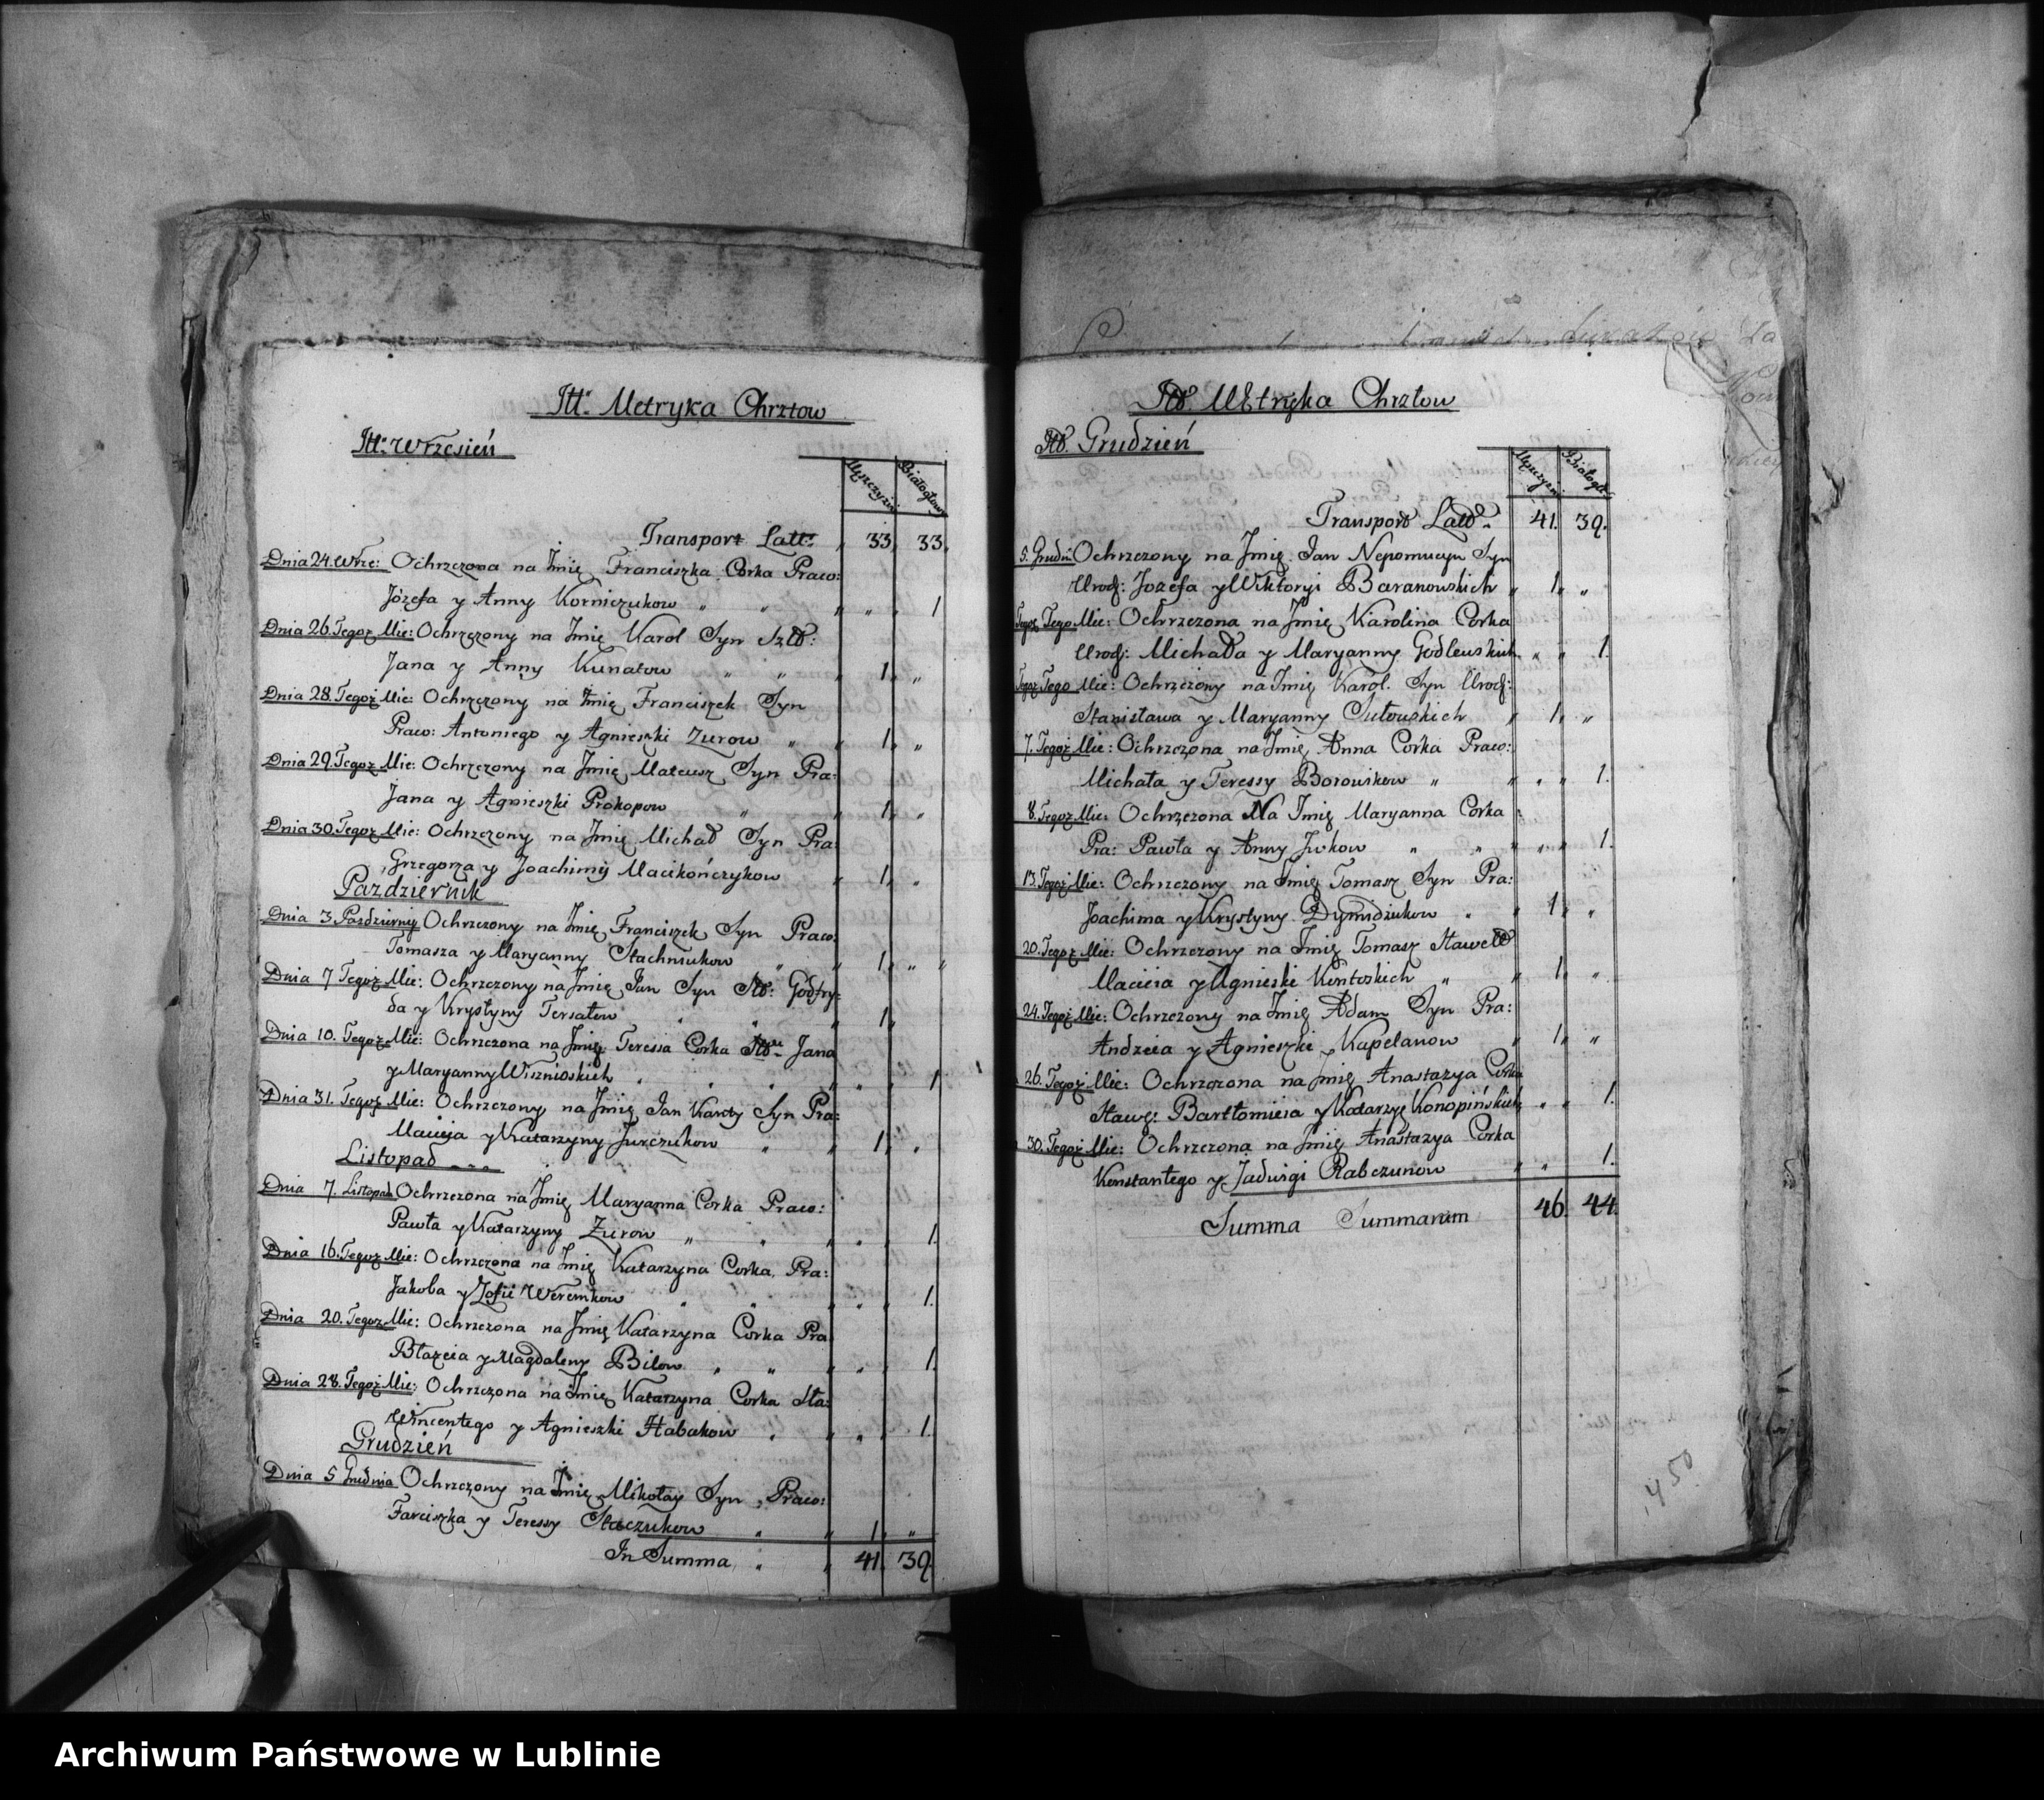 Itt: Metryka Chrztow
Itt: Wrzesień
Męszczyzn Białogłow
Transport Latt: 33. 33.
Dnia 24. Wrze: Ochrzczona na Jmię Franciszka Corka Praco:
Józefa y Anny Korniczukow " " " " 1
Dnia 26. Tegoz Mie: Ochrzczony na Jmię Karol Syn
Jana y Anny Kunatow " " " 1. "
Dnia 28. Tegoż Mie: Ochrzczony na Jmię Franciszek Syn
Praco: Antoniego y Agnieszki Zurow " " 1. "
Dnia 29. Tegoz Mie: Ochrzczony na Jmię Mateusz Syn Pra:
Jana y Agnieszki Prokopow " " 1. "
Dnia 30. Tegoz Mie: Ochrzczony na Jmię Michał Syn Pra:
Grzegorza y Joachimij Macikończykow " 1. "
Pazdziernik
Dnia 3. Pazdziernig Ochrzczony na Jmię Franciszek Syn Praco:
Tomasza y Maryanny Stachniukow " " 1. " "
Dnia 7 Tegoż Mie: Ochrzczony na Jmię Jan Syn Godfry:
da y Krystyny Tersatow " " " 1.
Dnia 10. Tegoz Mie: Ochrzczona na Jmię Teressa Corka Jana
y Maryanny Wisznioskich " " " " " 1.
Dnia 31. Tegoz Mie: Ochrzczony na Jmię Jan Kanty Syn Pra:
Macieja y Katarzyny Jurczukow " " 1. "
Listopad
Dnia 7. Listopad Ochrzczona na Jmię Maryanna Corka Praco:
Pawła y Katarzyny Zurow " " " " 1.
Dnia 16. Tegoz Mie: Ochrzczona na Jmię Katarzyna Corka Pra:
Jakoba y Zofii Weremkow " " " " 1.
Dnia 20. Tegoz Mie: Ochrzczona na Jmię Katarzyna Corka Pra
Błazeia y Magdaleny Bilow " " " " 1.
Dnia 28. Tegoż Mie: Ochrzczona na Jmię Katarzyna Corka Sła:
Wincentego y Agnieszki Habukow " " " 1.
Grudzień
Dnia 5 Grudnia Ochrzczony na Jmię Mikołay Syn Praco:
Farciszka y Teressy Staczukow " " 1. "
In Summa " " 41. 39
Itt. Metryka Chrztow
Itt. Grudzień
Męsczyzn Białogł:
Transport Latt: 41. 39.
5. Grudni Ochrzczony na Jmię Jan Nepomucyn Syn
Urodz: Jozefa y Wiktoryi Baranowskich " 1. "
Tegoz Tego Mie: Ochrzczona na Jmię Karolina Corka
Urodz: Michała y Maryanny Godlewskich " " 1.
Tegoz Tego Mie: Ochrzczony na Jmię Karol Syn Urodz:
Stanisława y Maryanny Sutowskich " 1. "
7. Tegoż Mie: Ochrzczona na Jmię Anna Corka Praco:
Michała y Teressy Borowikow " " " 1.
8. Tegoz Mie: Ochrzczona Na Jmię Maryanna Corka
Pra: Pawła y Anny Jwkow " " " " 1.
13. Tegoż Mie: Ochrzczony na Jmię Tomasz Syn Pra:
Joachima y Krystyny Dymidziukow " " 1. "
20. Tegoz Mie: Ochrzczony na Jmię Tomasz
Macieia y Agnieski Kontoskich " " 1. "
24. Tegoż Mie: Ochrzczony na Jmię Adam Syn Pra:
Andzeia y Agnieszki Kapelanow " 1. "
26. Tegoż Mie: Ochrzczona na Jmię Anastazya Corka
Sławę: Bartłomieia y Katarzyę Konopińskich " " 1.
30. Tegoż Mie: Ochrzczona na Jmię Anastazya Corka
Konstantego y Jadwigi Rabczunow " " 1.
Summa Summarum 46. 44.
450
Archiwum Państwowe w Lublinie